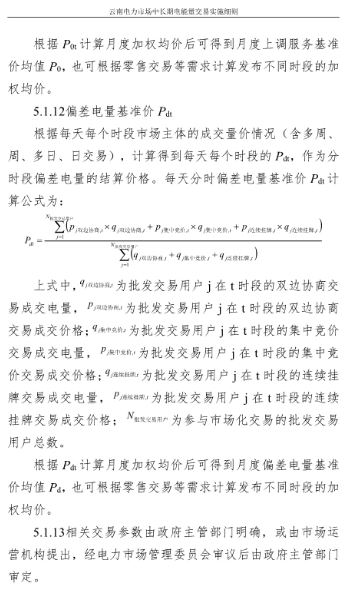 云南电力市场中长期电能量交易实施细则
根据 P0t 计算月度加权均价后可得到月度上调服务基准
价均值 P0，也可根据零售交易等需求计算发布不同时段的加
权均价。
5.1.12偏差电量基准价 Pdt
根据每天每个时段市场主体的成交量价情况（含多周、
周、多日、日交易），计算得到每天每个时段的 Pdt，作为分
时段偏差电量的结算价格。每天分时偏差电量基准价 Pdt 计
算公式为：
N批发交易用户
∑(p j双边协商,t × q j双边协商,t + p j集中竞价,t × q j集中竞价,t + p j连续挂牌,t × q j连续挂牌,t)
j=1
Pdt =
N批发交易用户
∑(q j双边协商,t + q j集中竞价,t + q j连续挂牌,t)
j=1
上式中，q j双边协商,t 为批发交易用户 j 在 t 时段的双边协商交
易成交电量， p j双边协商,t 为批发交易用户 j 在 t 时段的双边协商
交易成交价格；q j集中竞价,t 为批发交易用户 j 在 t 时段的集中竞价
交易成交电量， p j集中竞价,t 为批发交易用户 j 在 t 时段的集中竞
价交易成交价格；q j连续挂牌,t 为批发交易用户 j 在 t 时段的连续挂
牌交易成交电量， p j连续挂牌,t 为批发交易用户 j 在 t 时段的连续
挂牌交易成交价格； N批发交易用户 为参与市场化交易的批发交易
用户总数。
根据 Pdt 计算月度加权均价后可得到月度偏差电量基准
价均值 Pd，也可根据零售交易等需求计算发布不同时段的加
权均价。
5.1.13相关交易参数由政府主管部门明确，或由市场运
营机构提出，经电力市场管理委员会审议后由政府主管部门
审定。